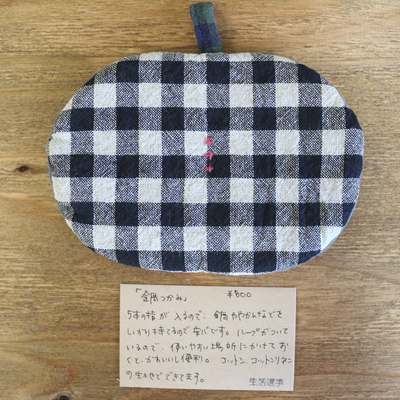 「鍋つかみ」 ¥800
5本の指が入るので、鍋ややかんなどを
しっかり持てるので安心です。ループがついて
いるので、使いやすい場所にかけてお
くと、かわいいし便利。コットン、コットンリネン
の生地でできてます。
生活道季